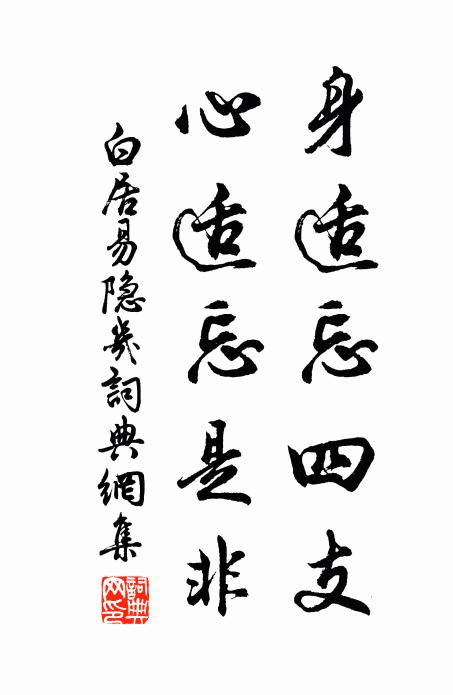 身适忘四支
心适忘是非
白居易隐几詞典網集
詞典網印